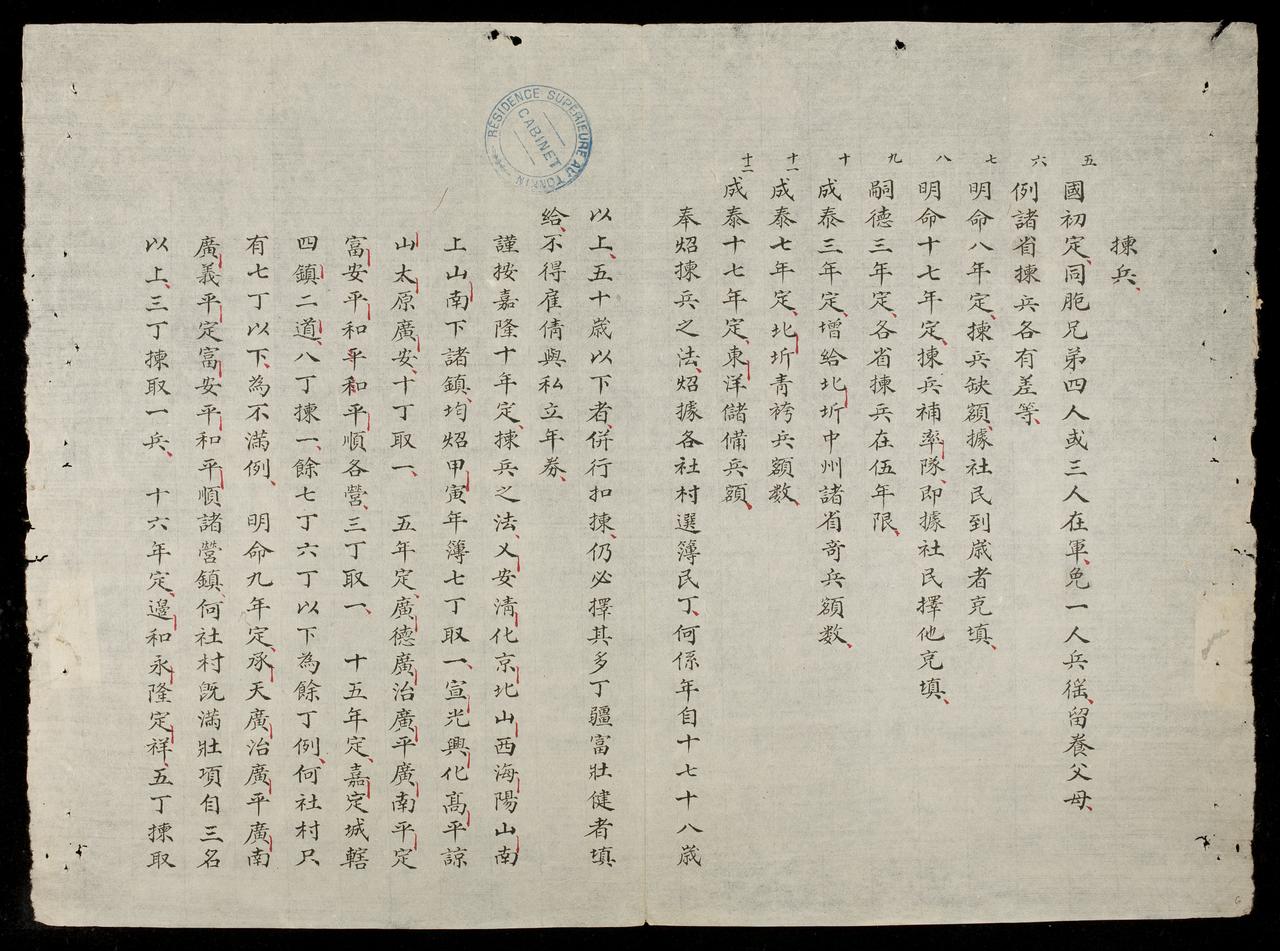 揀兵
五 國初定同胞兄弟四人或三人在軍免一人兵徭留養父母
六 例諸省揀兵各有差等
七 明命八年定揀兵缺額據社民到歲者充填
八 明命十七年定揀兵補率隊即據社民擇他充填
九 嗣德三年定各省揀兵在伍年限
十 成泰三年定增給北圻中州諸省奇兵額数
十一 成泰七年定北圻青袴兵額数
十二 成泰十七年定東洋儲備兵額
奉炤揀兵之法炤據各社村選簿民丁何係年自十七十八歲
以上五十歲以下者併行扣揀仍必擇其多丁疆富壯健者填
給不得雇倩與私立年券
謹按嘉隆十年定揀兵之法乂安清化京北山西海陽山南
上山南下諸鎮均炤甲寅年簿七丁取一宣光興化高平諒
山太原廣安十丁取一 五年定廣德廣治廣平廣南平定
富安平和平和平順各營三丁取一 十五年定嘉定城轄
四鎮二道八丁揀一餘七丁六丁以下為餘丁例何社村只
有七丁以下為不滿例 明命九年定承天廣治廣平廣南
廣義平定富安平和平順諸營鎮何社村既滿壯項自三名
以上三丁揀取一兵 十六年定邊和永隆定祥五丁揀取
RÉSIDENCE SUPÉRIEURE AU TONKIN
CABINET